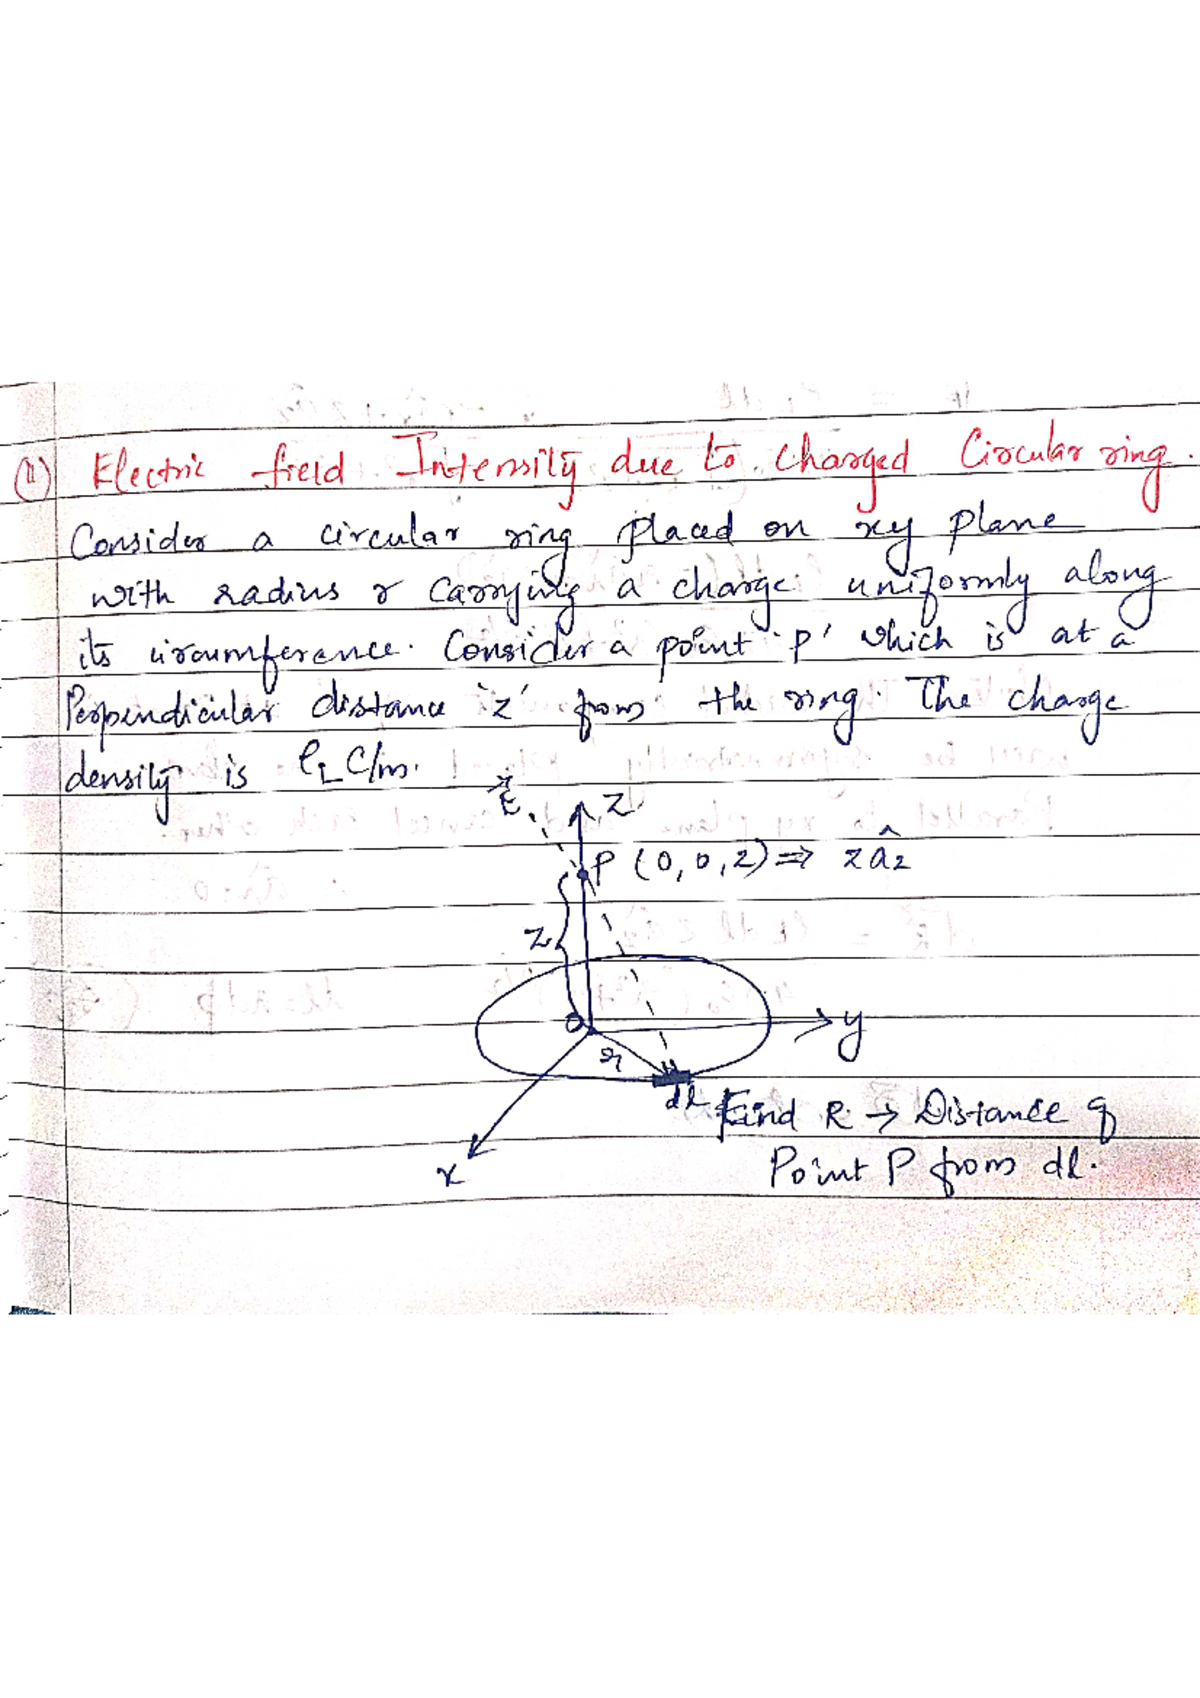 (1) Electric field Intensity due to charged Circular ring.
Consider a circular ring placed on xy plane
with radius r carrying a charge uniformly along
its circumference. Consider a point 'P' which is at a
Perpendicular distance 'z' from the ring. The charge
density is ρL C/m.
E⃗
Z
P (0, 0, z) ⇒ z âz
z
O
y
r
dl
Find R → Distance of
Point P from dl.
x